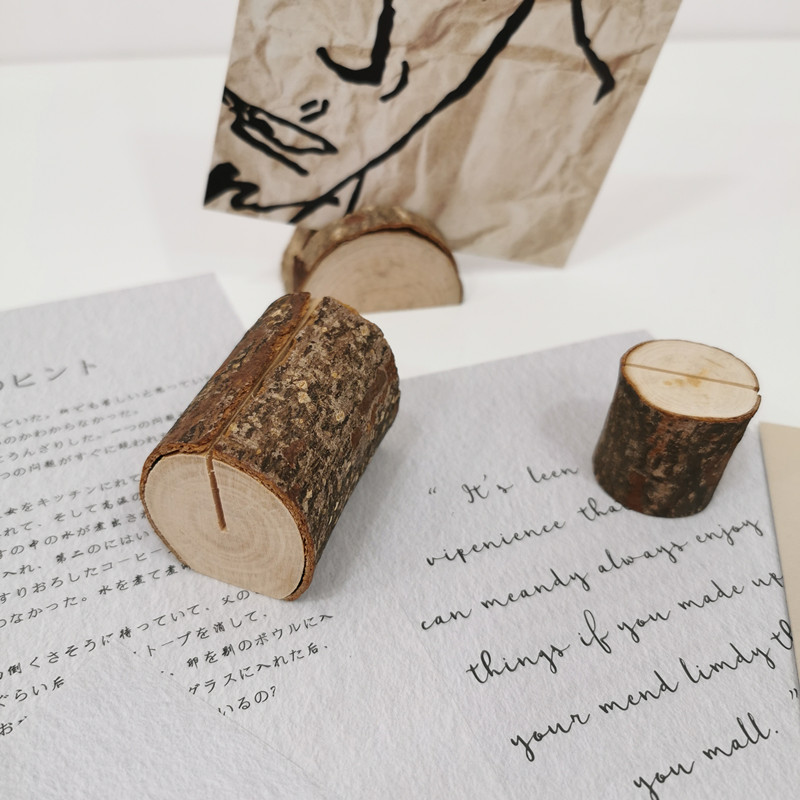 のヒント
ていた。
のかわからなかった。
とうんざりした。一つの問題が
つの問題がすぐに
をキッチンに
れて、そして高温の
すの中の水が
入れ、第二のには
すりおろしたコーヒー
つなかった。水を
くさそうに待っていて、父の
ぐらい后
トーブを消して、
卵を別のボウルに入
グラスに入れた后.
いるの?
“ It's leen
vipenience tha
can meandy always enjoy
things if you made up
your mend limdy th
you mall. ”